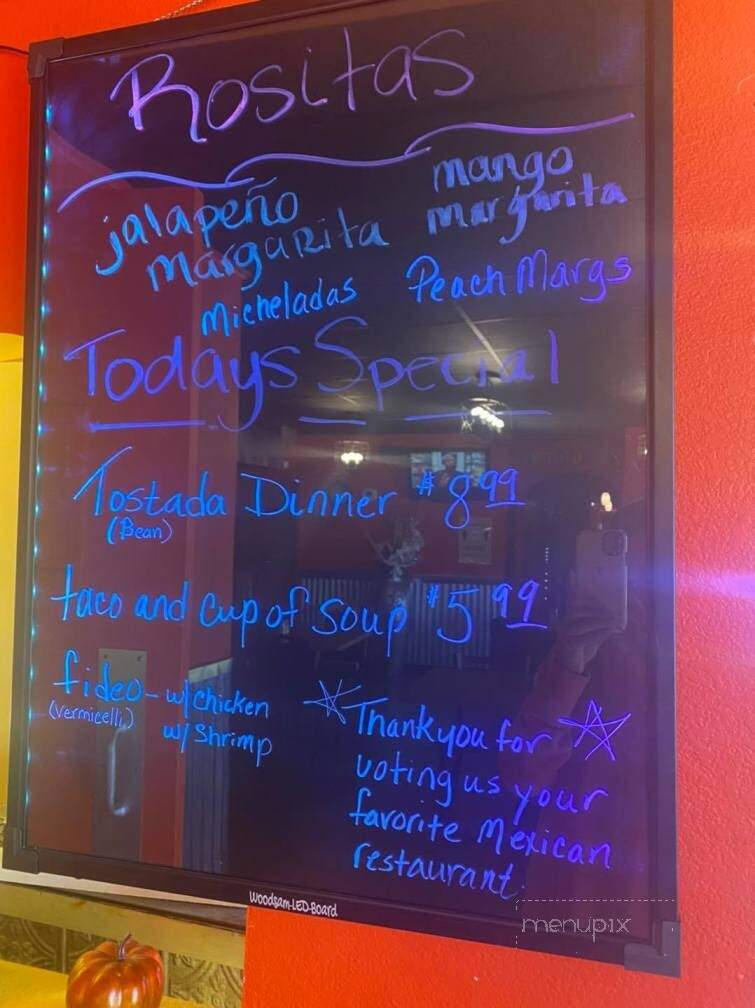 Rositas
jalapeño
margarita
mango
margarita
Micheladas
Peach Margs
Todays Special
Tostada Dinner $8.99
(Bean)
taco and cup of soup $5.99
fideo - w/ chicken
(vermicelli) w/ Shrimp
Thank you for
voting us your
favorite Mexican
restaurant.
Woodsam-LED-Board
menupix